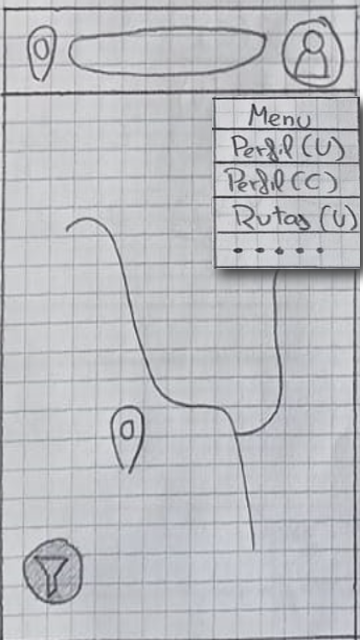 Menu
Perfil (U)
Perfil (C)
Rutas (U)
.....